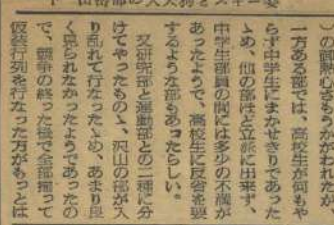 の競争心がうかがわれたが、
一方ある部では、高校生が何もや
らず中学生にまかせきりであった
ゝめ、他の部ほど立派に出来ず、
中学生部員の間には多少の不満が
あったようで、高校生に反省を要
するような部もあったらしい。
又研究部と運動部との二種に分
けてやったものゝ、沢山の部が入
り乱れて行なったゝめ、あまり良
く見られなかったようであったの
で、競争の終った後で全部揃って
仮装行列を行なった方がもっとは